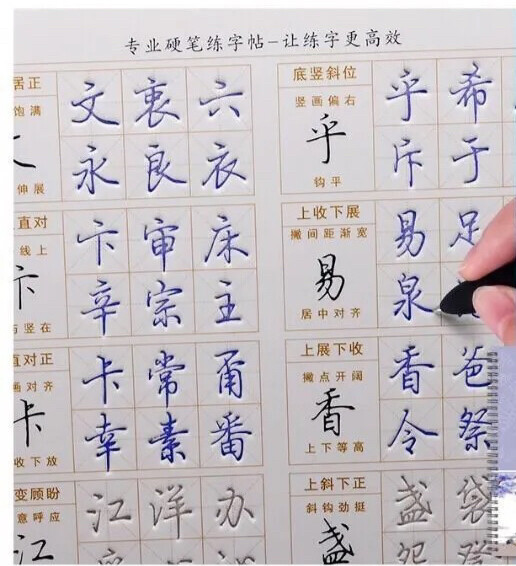 专业硬笔练字帖－让练字更高效
居正
饱满
伸展
文衷六
永良衣
直对
线上
卞
与竖在
卞审床
辛宗主
直对正
画对齐
卡
收下放
卡常甬
幸素番
变顾盼
意呼应
江
江洋办
底竖斜位
竖画偏右
乎
钩平
乎希
斥于
上收下展
撇间距渐宽
易
居中对齐
易足
泉
上展下收
撇点开阔
香
上下等高
香爸
令祭
上斜下正
斜钩劲挺
盏
盏袋